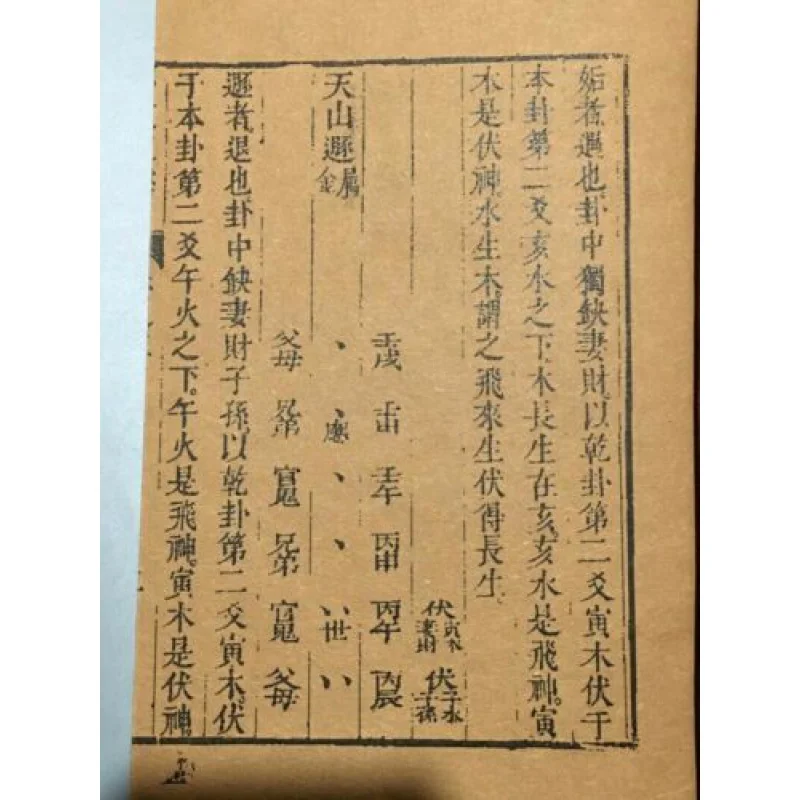 姤者遇也卦中獨缺妻財以乾卦第二爻寅木伏于
本卦第二爻亥水之下木長生在亥亥水是飛神。寅
木是伏神水生木謂之飛來生伏得長生
伏寅木妻財 伏子水子孫
壬戌 壬申 壬午 丙申 丙午 丙辰
天山遯屬金 、 、應 、 、 、、世 、、
父母 兄弟 官鬼 兄弟 官鬼 父母
遯者退也卦中缺妻財子孫以乾卦第二爻寅木。伏
于本卦第二爻午火之下。午火是飛神。寅木是伏神